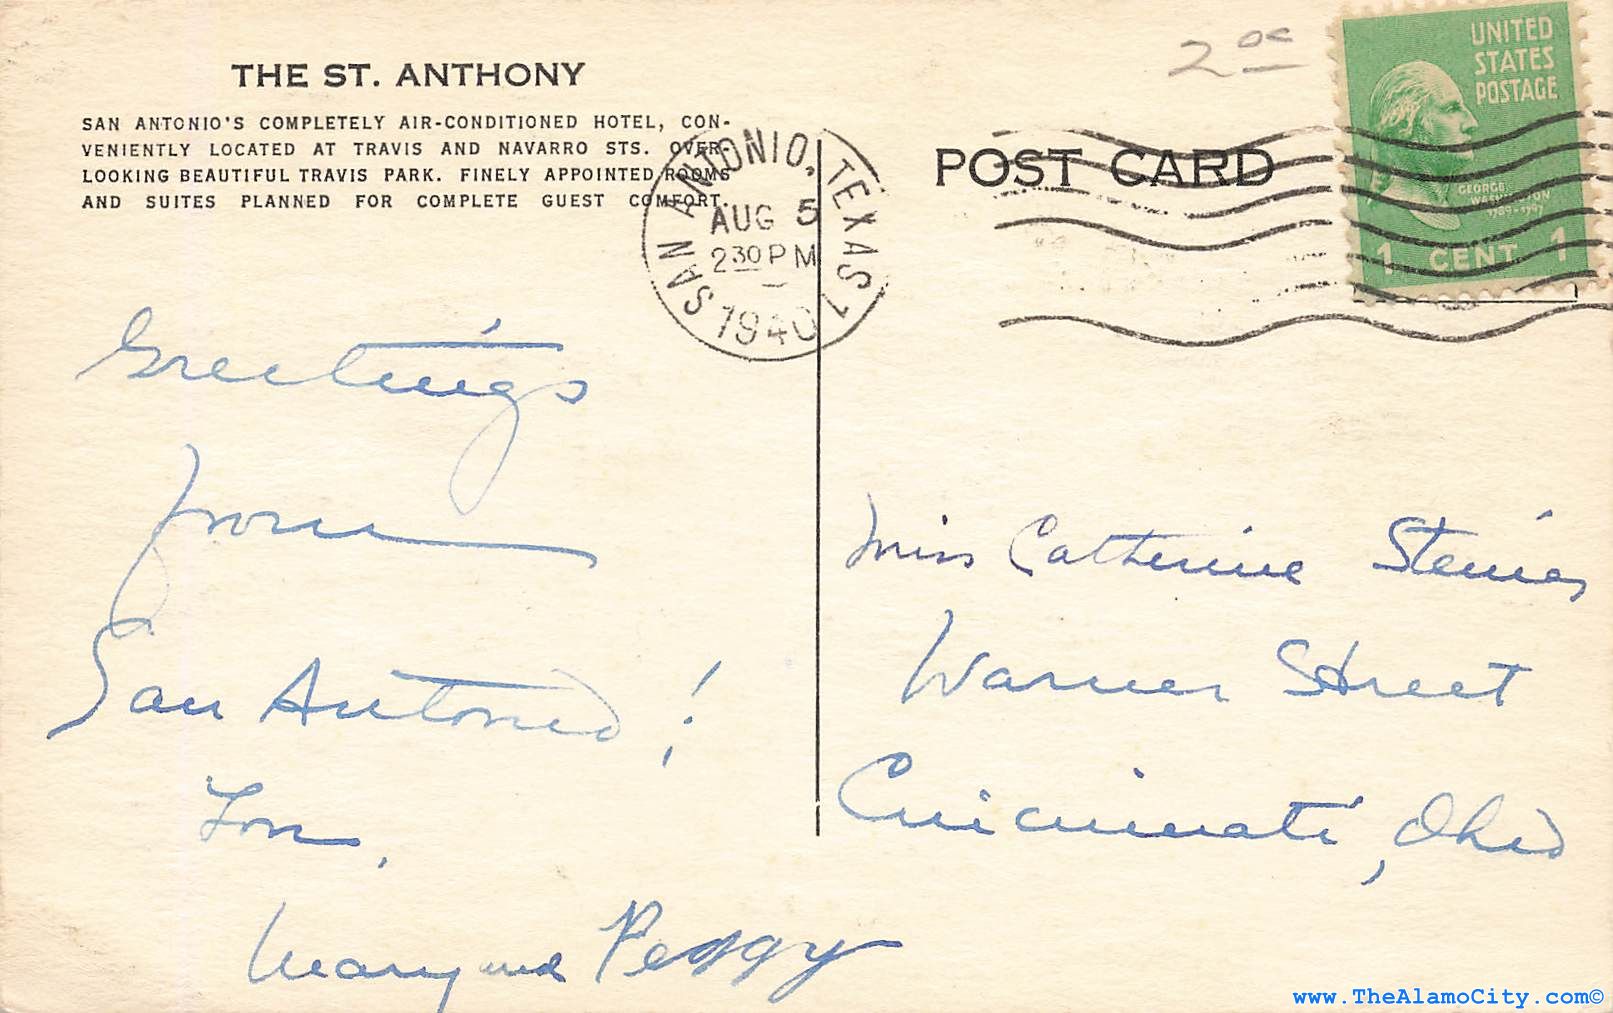 THE ST. ANTHONY
SAN ANTONIO'S COMPLETELY AIR-CONDITIONED HOTEL, CON-
VENIENTLY LOCATED AT TRAVIS AND NAVARRO STS. OVER-
LOOKING BEAUTIFUL TRAVIS PARK. FINELY APPOINTED ROOMS
AND SUITES PLANNED FOR COMPLETE GUEST COMFORT.
SAN ANTONIO, TEXAS 1
AUG 5
2 30 PM
1940
2 00
POST CARD
UNITED
STATES
POSTAGE
GEORGE
WASHINGTON
1789-1797
1 CENT 1
Greetings
from
San Antonio!
Mary and Peggy
Miss Catherine
Warner Street
Cincinnati, Ohio
www.TheAlamoCity.com©